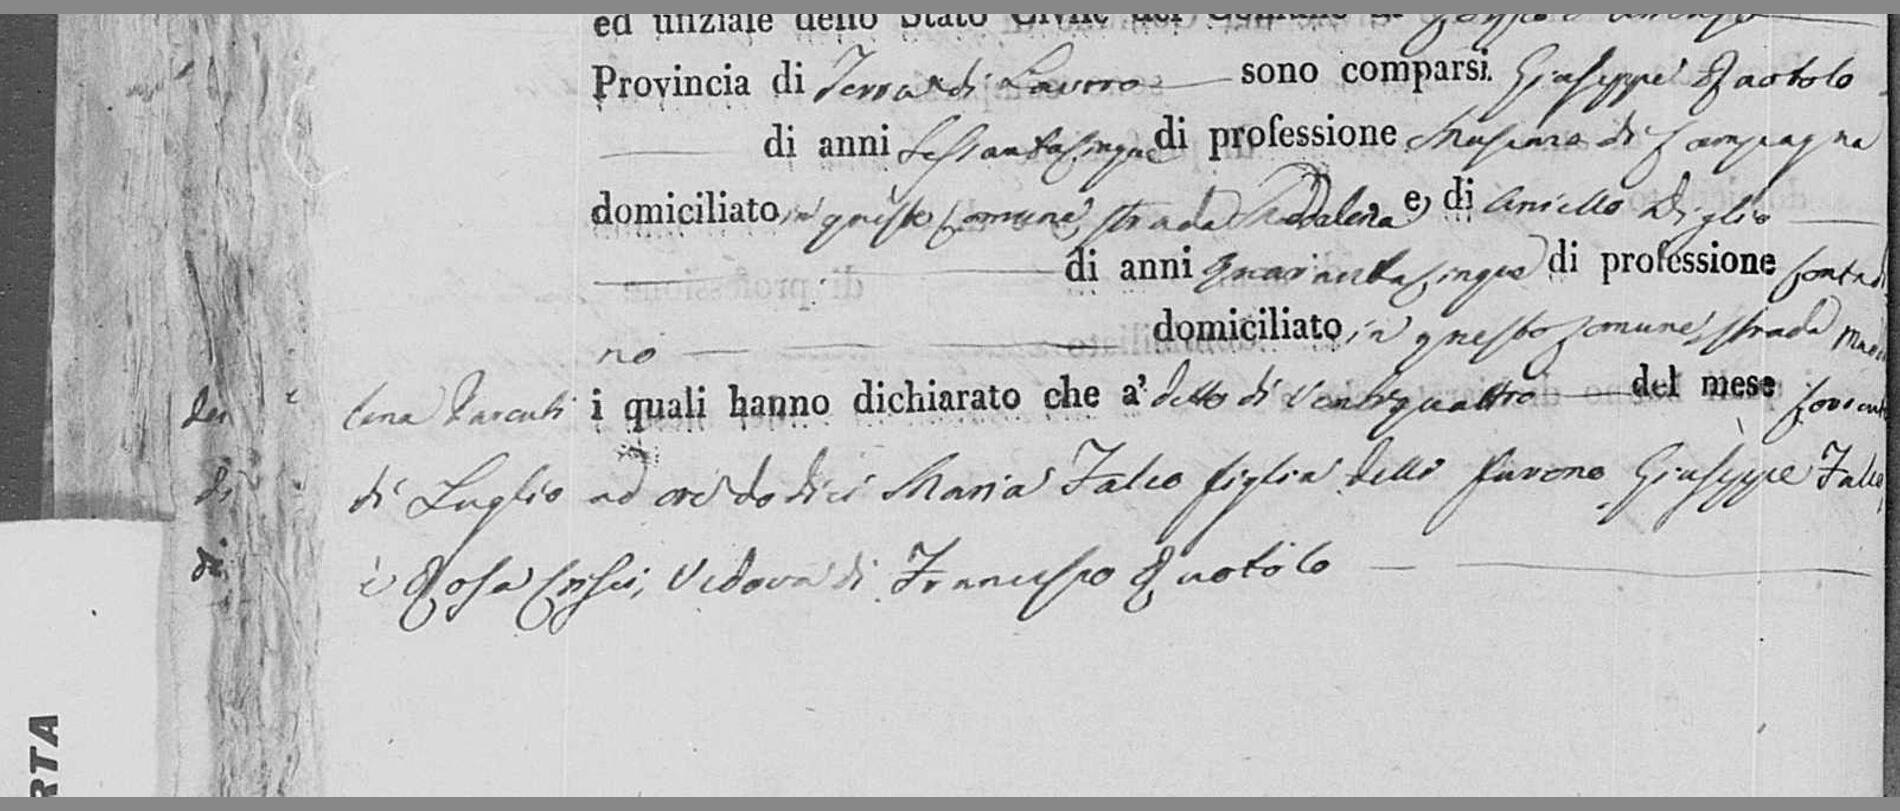 ed uffiziale dello Stato Civile del Comune di
Provincia di Terra di Lavoro sono comparsi Giuseppe Ruotolo
di anni sessantacinque di professione di Campagna
domiciliato in questo Comune, strada Maddalena e, di Aniello Diglio
di anni quarantacinque di professione Contadi
no domiciliato in questo Comune, strada Madda
lena i quali hanno dichiarato che a' detto di Ventiquattro del mese Corrente
di Luglio ad ore dodici Maria Falco figlia delli furono Giuseppe Falco
è Rosa Crisci, Vedova di Francesco Ruotolo
RTA